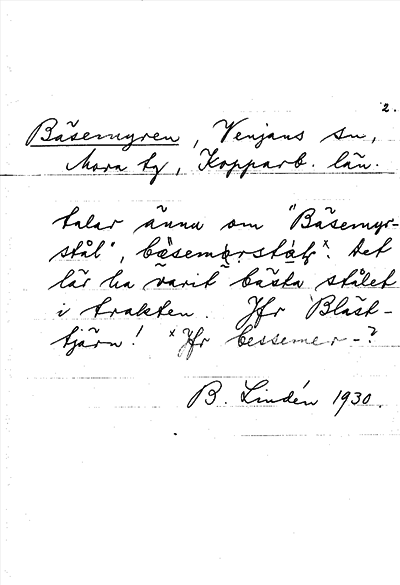 2.
Bäsemyren, Venjans sn,
Mora tg, Kopparb. län.
talar ännu om "Bäsemyr-
stål", bäsemọrstạ̊lx. Det
lär ha varit bästa stålet
i trakten. Jfr Bläst-
tjärn! x Jfr bessemer-?
B. Lindén 1930.